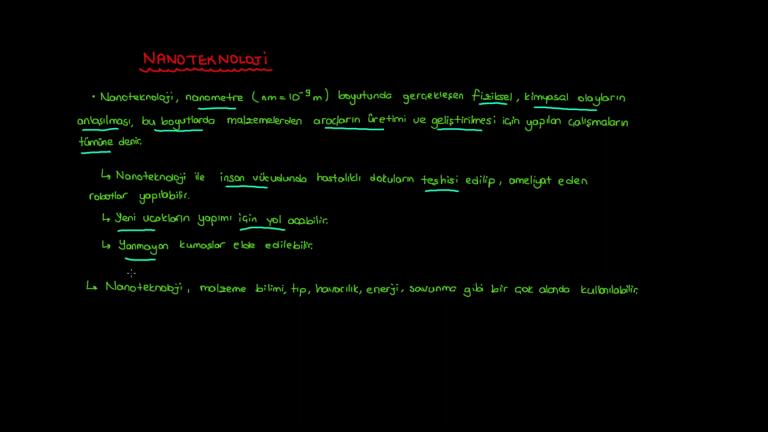 NANOTEKNOLOJİ
• Nanoteknoloji, nanometre (nm = 10⁻⁹ m) boyutunda gerçekleşen fiziksel, kimyasal olayların
anlaşılması, bu boyutlarda malzemelerden araçların üretimi ve geliştirilmesi için yapılan çalışmaların
tümüne denir.
↳ Nanoteknoloji ile insan vücudunda hastalıklı dokuların teşhisi edilip, ameliyat eden
robotlar yapılabilir.
↳ Yeni uçakların yapımı için yol açabilir.
↳ Yanmayan kumaşlar elde edilebilir.
↳ Nanoteknoloji, malzeme bilimi, tıp, havacılık, enerji, savunma gibi bir çok alanda kullanılabilir.